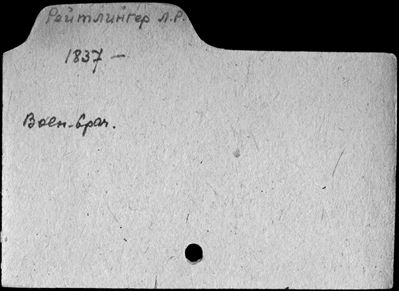 Рейтлингер Л.Р.
1837 —
Воен.-врач.